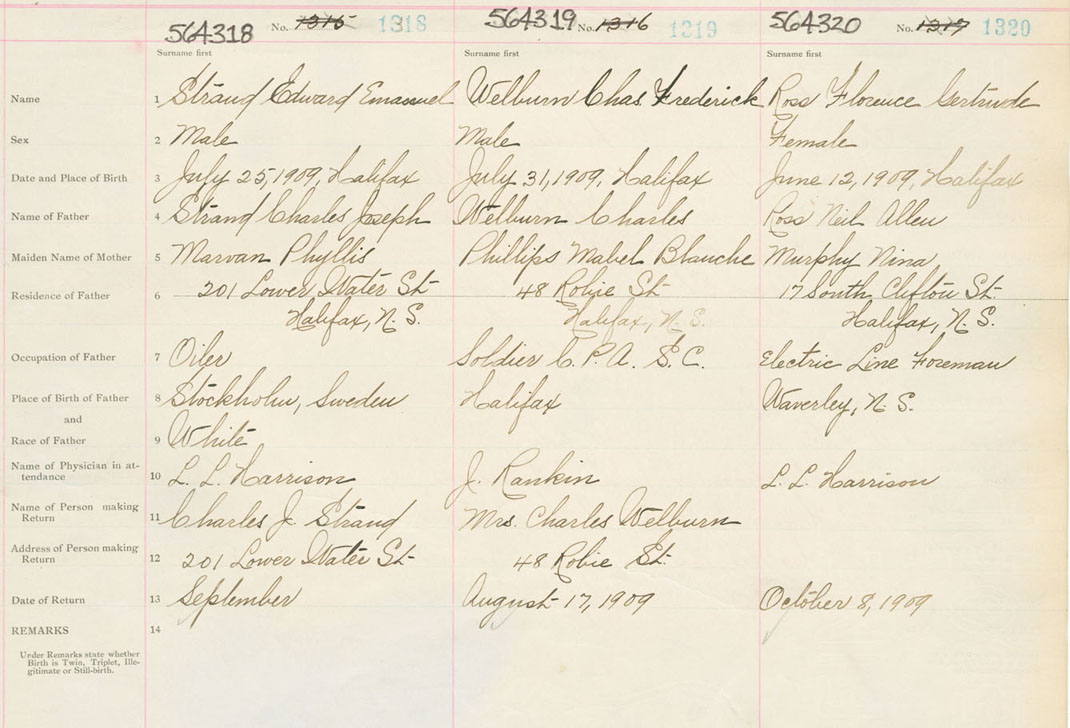 564318 No. 1315 1318 564319 No. 1316 1319 564320 No. 1317 1320
Surname first Surname first Surname first
Name 1 Strand Edward Emanuel Welburn Chas. Frederick Ross Florence Gertrude
Sex 2 Male Male Female
Date and Place of Birth 3 July 25, 1909, Halifax July 31, 1909, Halifax June 12, 1909, Halifax
Name of Father 4 Strand Charles Joseph Welburn Charles Ross Neil Allen
Maiden Name of Mother 5 Marvan Phyllis Phillips Mabel Blanche Murphy Nina
Residence of Father 6 201 Lower Water St 48 Robie St 17 South Clifton St.
Halifax, N. S. Halifax, N. S. Halifax, N. S.
Occupation of Father 7 Oiler Soldier C. P. A. S. C. Electric Line Foreman
Place of Birth of Father 8 Stockholm, Sweden Halifax Waverley, N. S.
and
Race of Father 9 White
Name of Physician in at-
tendance 10 L. L. Harrison J. Rankin L. L. Harrison
Name of Person making
Return 11 Charles J. Strand Mrs. Charles Welburn
Address of Person making
Return 12 201 Lower Water St 48 Robie St.
Date of Return 13 September August 17, 1909 October 8, 1909
REMARKS 14
Under Remarks state whether
Birth is Twin, Triplet, Ille-
gitimate or Still-birth.